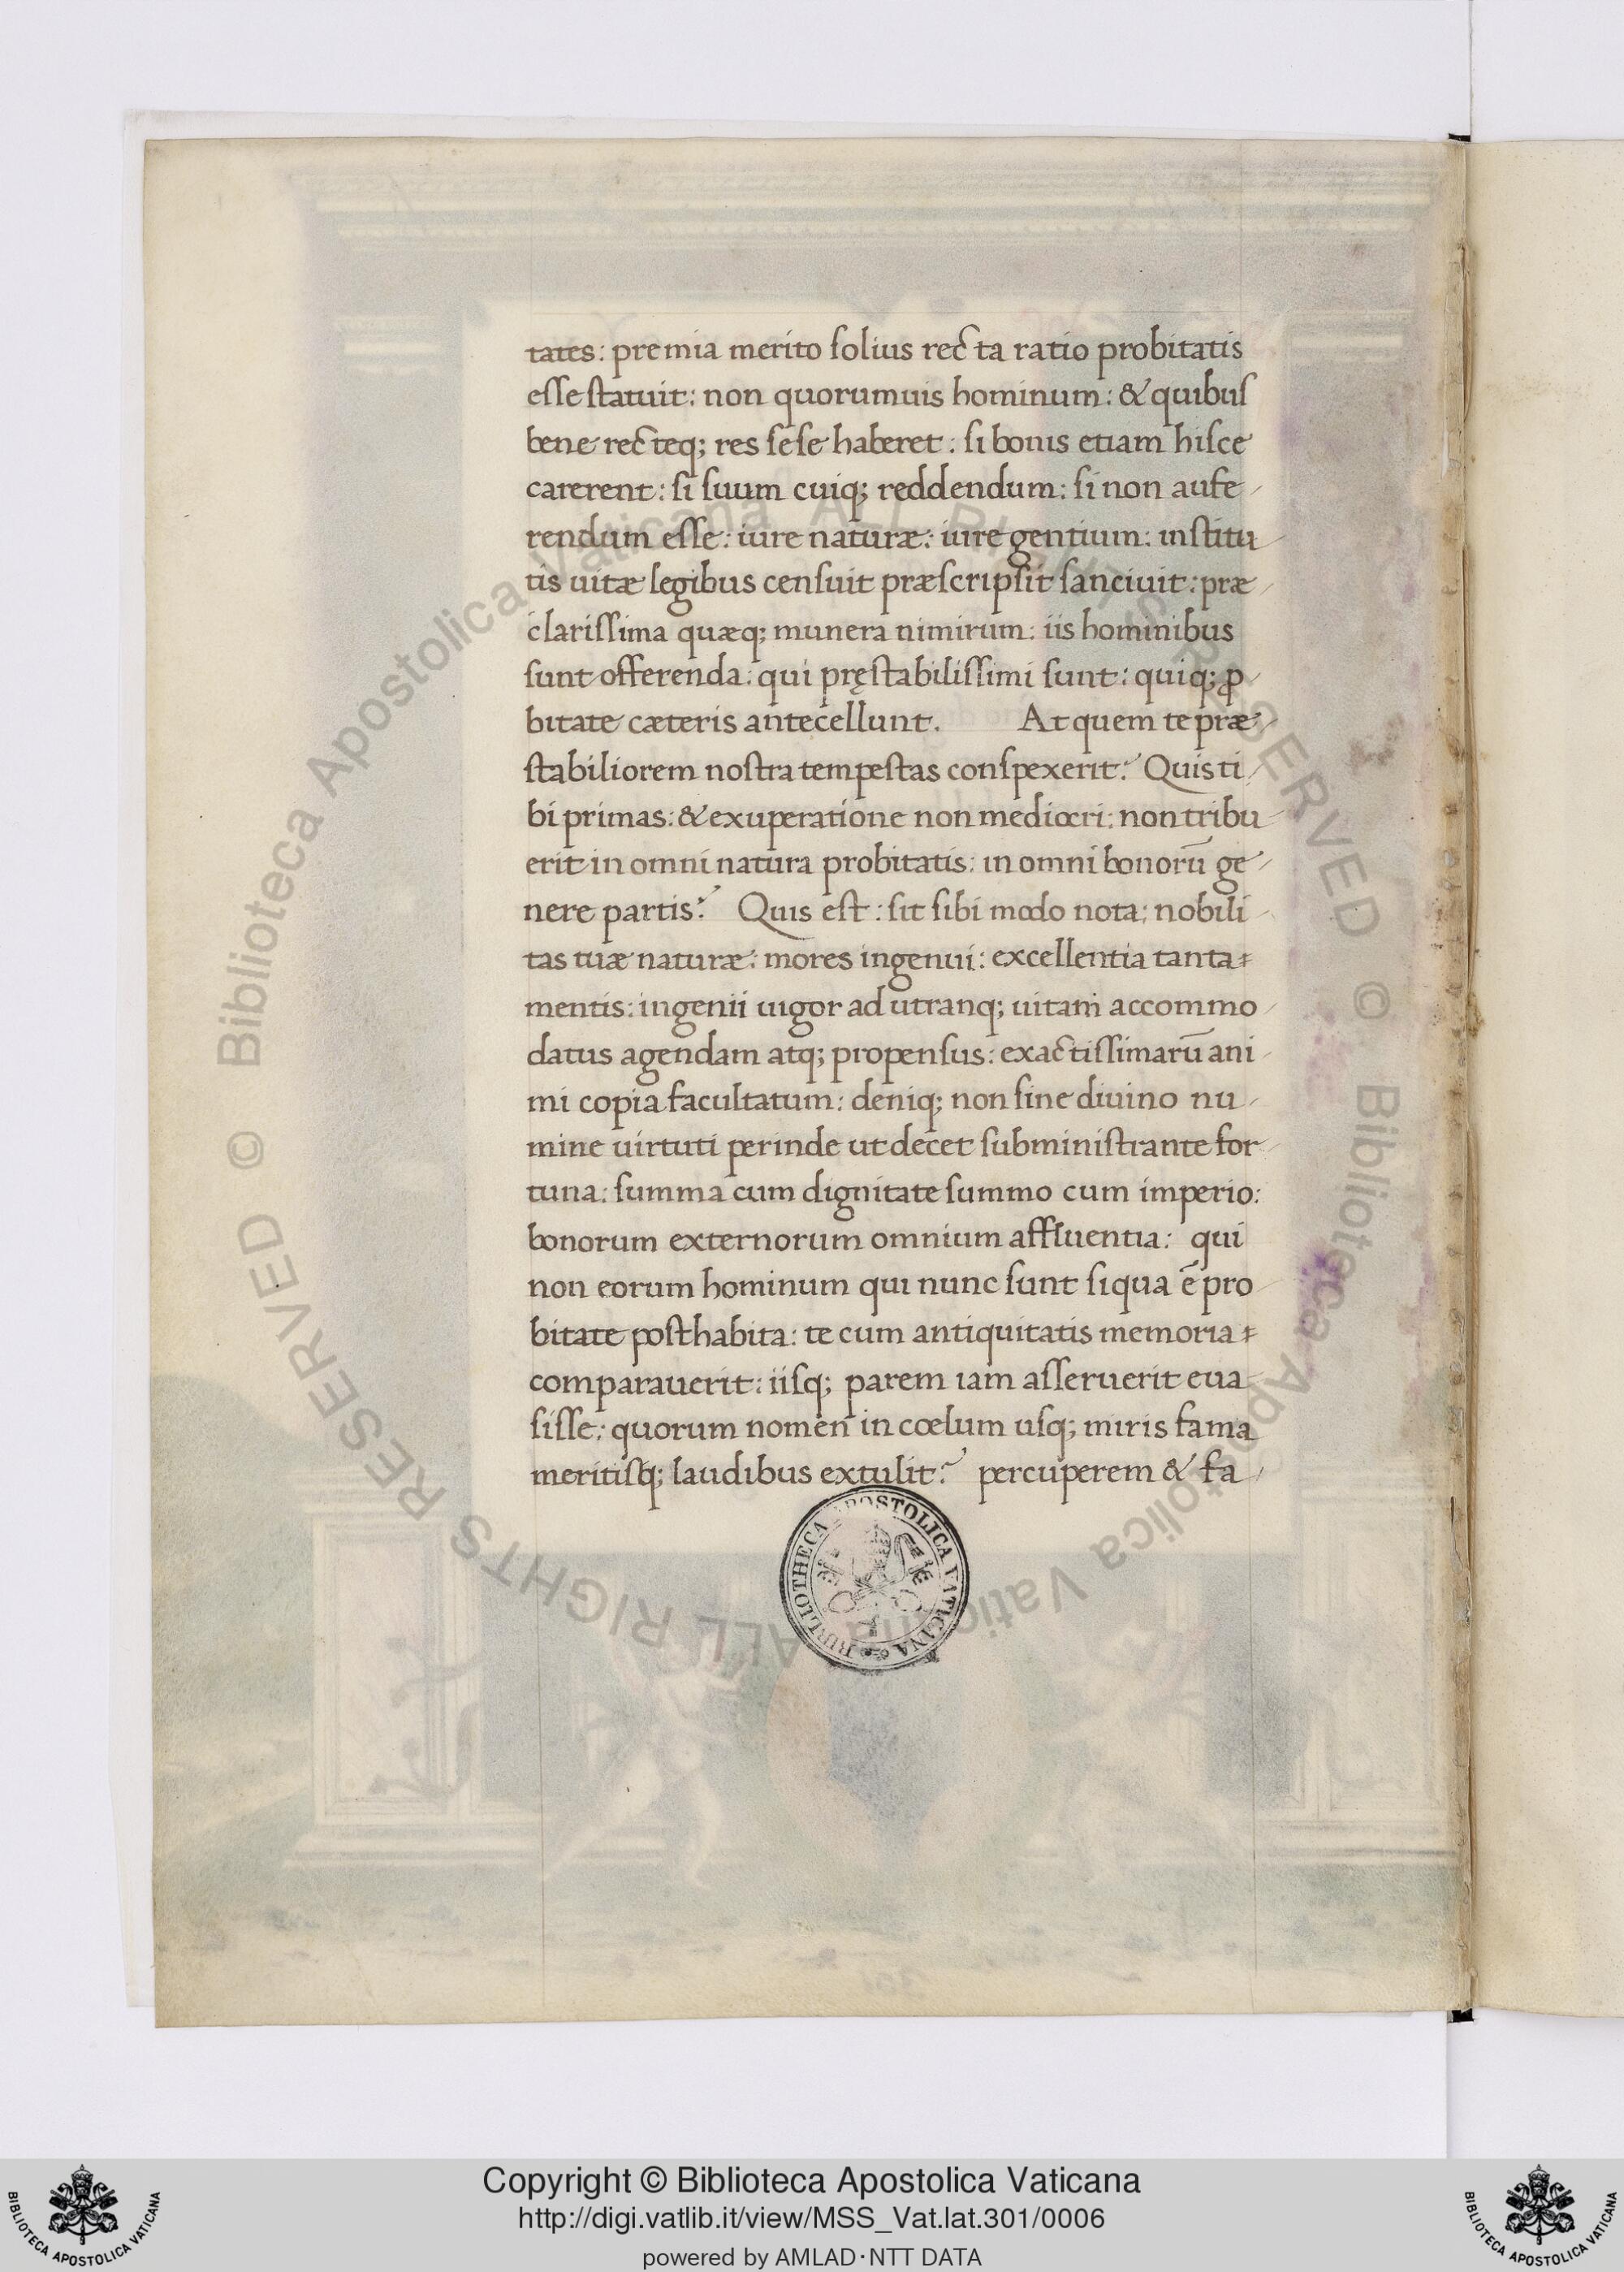 tates: premia merito solius recta ratio probitatis
esse statuit: non quorumuis hominum: & quibus
bene recteq; res sese haberet: si bonis etiam hisce
carerent: si suum cuiq; reddendum: si non aufe-
rendum esse: iure naturæ: iure gentium: institu-
tis uitæ legibus censuit præscripsit sanciuit: præ-
clarissima quæq; munera nimirum: iis hominibus
sunt offerenda: qui pręstabilissimi sunt: quiq; ꝓ-
bitate cæteris antecellunt. At quem te præ-
stabiliorem nostra tempestas conspexerit? Quis ti-
bi primas: & exuperatione non mediocri: non tribu-
erit in omni natura probitatis: in omni bonorū ge-
nere partis? Quis est: sit sibi modo nota: nobili-
tas tuæ naturæ: mores ingenui: excellentia tanta
mentis: ingenii uigor ad utranq; uitam accommo-
datus agendam atq; propensus: exactissimarū ani-
mi copia facultatum: deniq; non sine diuino nu-
mine uirtuti perinde ut decet subministrante for-
tuna: summa cum dignitate summo cum imperio:
bonorum externorum omnium affluentia: qui
non eorum hominum qui nunc sunt siqua ē pro-
bitate posthabita: te cum antiquitatis memoria
comparauerit: iisq; parem iam asseruerit eua-
sisse: quorum nomen in cœlum usq; miris fama
meritisq; laudibus extulit? percuperem & fa-
BIBLIOTHECA APOSTOLICA VATICANA
© Biblioteca Apostolica Vaticana ALL RIGHTS RESERVED © Biblioteca Apostolica Vaticana ALL RIGHTS RESERVED
Copyright © Biblioteca Apostolica Vaticana
http://digi.vatlib.it/view/MSS_Vat.lat.301/0006
powered by AMLAD·NTT DATA
BIBLIOTECA APOSTOLICA VATICANA
BIBLIOTECA APOSTOLICA VATICANA